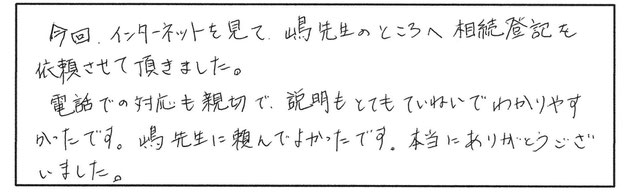 今回、インターネットを見て、嶋先生のところへ相続登記を
依頼させて頂きました。
電話での対応も親切で、説明もとてもていねいでわかりやす
かったです。嶋先生に頼んでよかったです。本当にありがとうござ
いました。